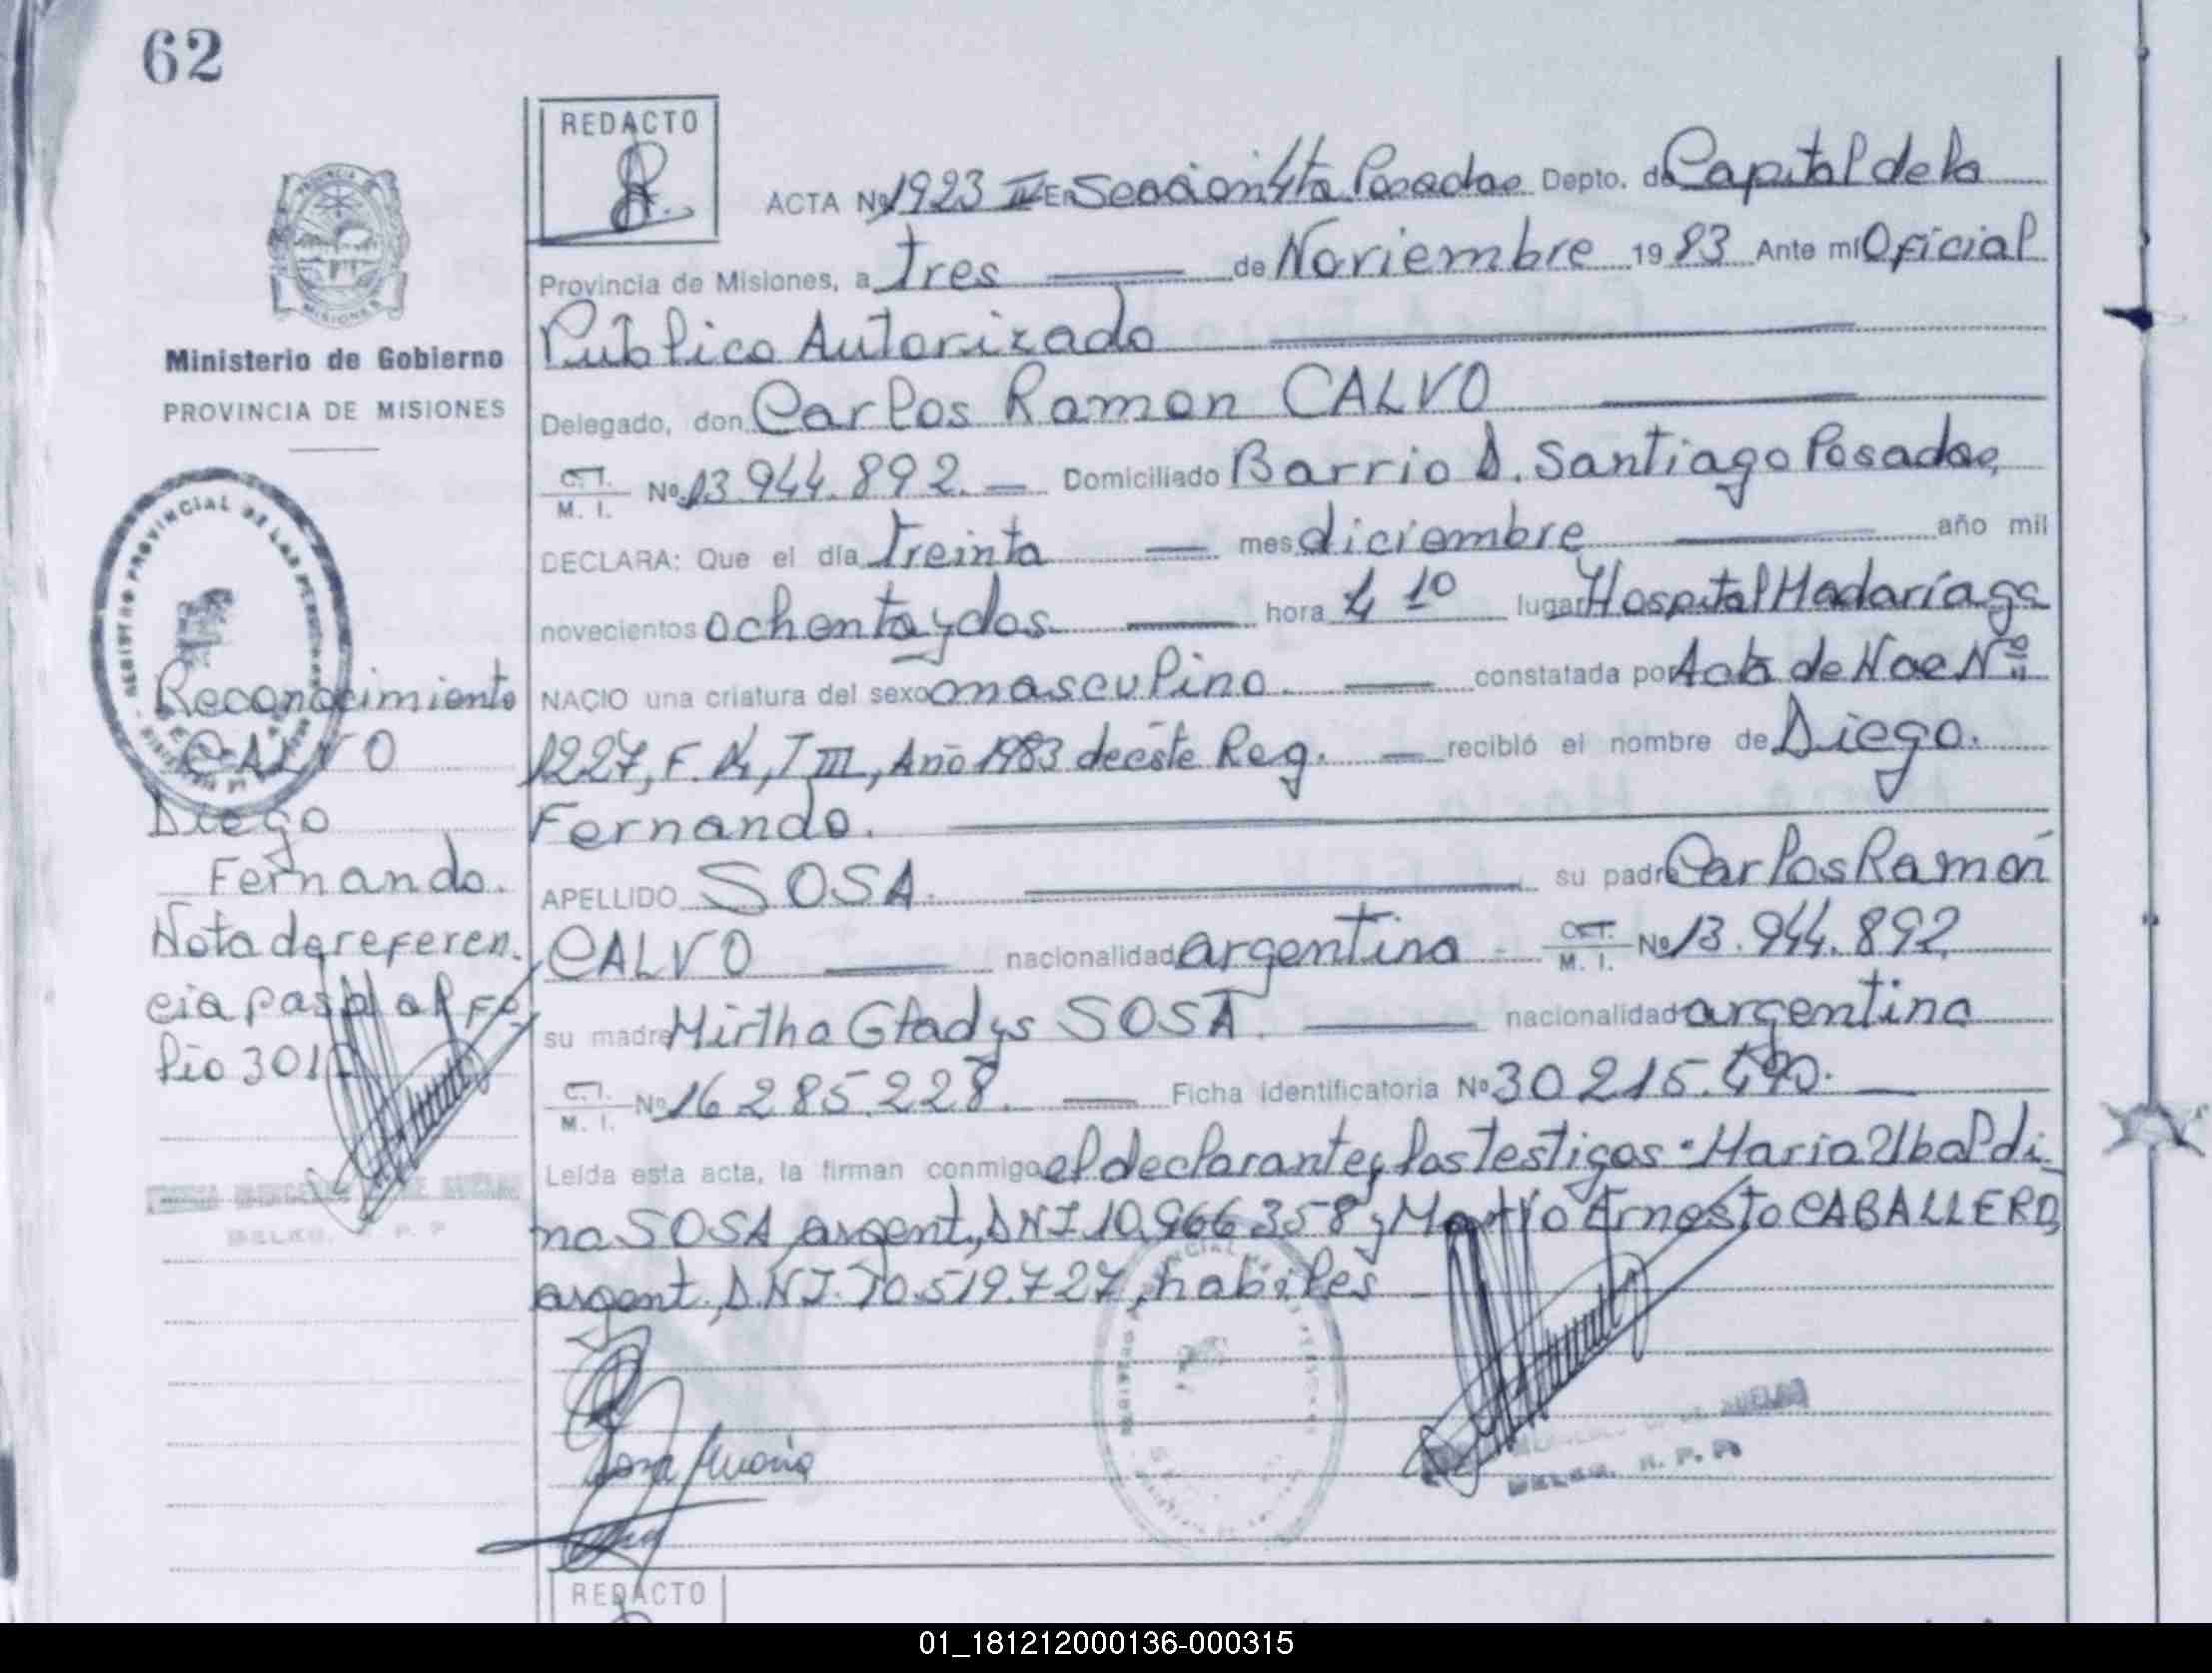 62
REDACTO
ACTA Nº 1923 IV EN Sección 4ta Posadas Depto. de Capital de la
Provincia de Misiones, a tres de Noviembre 1983 Ante mí Oficial
Público Autorizado
Delegado, don Carlos Ramon CALVO
C.I.
M. I. Nº 13.944.892. Domiciliado Barrio D. Santiago Posadas,
DECLARA: Que el día treinta mes diciembre año mil
novecientos ochenta y dos hora 4 10 lugar Hospital Madariaga
NACIO una criatura del sexo masculino. constatada por Acta de Nac Nº
1227, F. 14, T III, Año 1983 de éste Reg. recibió el nombre de Diego.
Fernando.
APELLIDO SOSA. su padre Carlos Ramón
CALVO nacionalidad argentina C.I.
M. I. Nº 13.944.892
su madre Mirtha Gladys SOSA. nacionalidad argentina
C.I.
M. I. Nº 16.285.228. Ficha identificatoria Nº 30.215.490.
Leída esta acta, la firman conmigo el declarante y los testigos: María Ubaldi-
na SOSA, argent., DNI 10.966.358 y Mario Ernesto CABALLERO,
argent., D.N.I. 10.519.727, hábiles
Sosa María
DELEG. R. P. P.
REDACTO
PROVINCIA DE
MISIONES
Ministerio de Gobierno
PROVINCIA DE MISIONES
REGISTRO PROVINCIAL DE LAS PERSONAS
Reconocimiento
CALVO
Diego
Fernando.
Nota de referen.
cia pasa al Fo
lio 301
DELEG. R. P. P.
01_181212000136-000315